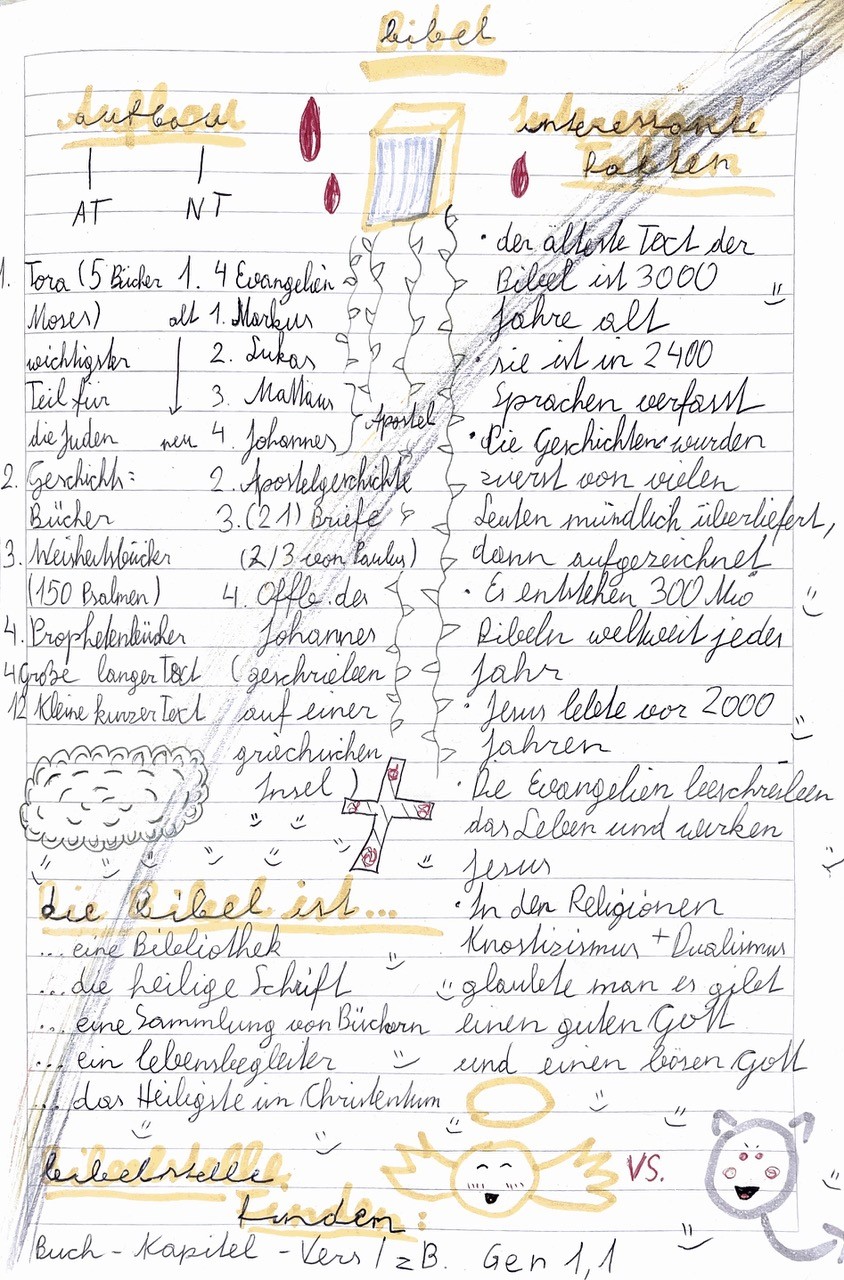 Bibel
Aufbau
AT NT
1. Tora (5 Bücher
Moses)
wichtigster
Teil für
die Juden
2. Geschichts=
Bücher
3. Weisheitsbücher
(150 Psalmen)
4. Prophetenbücher
4 große langer Text
12 kleine kurzer Text
1. 4 Evangelien
alt 1. Markus
2. Lukas
3. Mattäus
neu 4. Johannes
Apostel
2. Apostelgeschichte
3. (21) Briefe
(2/3 von Paulus)
4. Offb. des
Johannes
(geschrieben
auf einer
griechischen
Insel)
interessante
Fakten
• der älteste Text der
Bibel ist 3000
Jahre alt
• sie ist in 2400
Sprachen verfasst
• Die Geschichten wurden
zuerst von vielen
Leuten mündlich überliefert,
dann aufgezeichnet
• Es entstehen 300 Mio
Bibeln weltweit jedes
Jahr
• Jesus lebte vor 2000
Jahren
• Die Evangelien beschreiben
das Leben und wirken
Jesus
• In den Religionen
Knostizismus + Dualismus
glaubte man es gibt
einen guten Gott
und einen bösen Gott
die Bibel ist...
... eine Bibliothek
... die heilige Schrift
... eine Sammlung von Büchern
... ein lebensbegleiter
... das Heiligste im Christentum
VS.
bibelstelle
finden:
Buch - Kapitel - Vers / zB. Gen 1,1